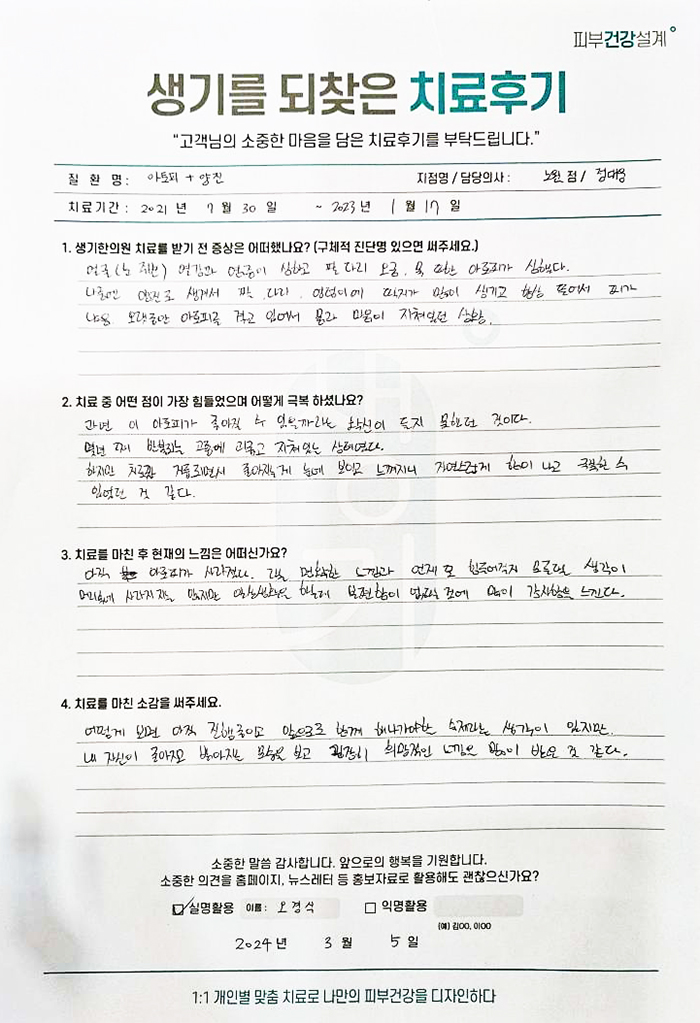 피부건강설계
생기를 되찾은 치료후기
"고객님의 소중한 마음을 담은 치료후기를 부탁드립니다."
질 환 명 : 아토피 + 양진 지점명 / 담당의사 : 노원 점 / 정대웅
치료기간 : 2021 년 7 월 30 일 ~ 2023 년 1 월 17 일
1. 생기한의원 치료를 받기 전 증상은 어떠했나요? (구체적 진단명 있으면 써주세요.)
얼굴(눈 주변) 열감과 심하고 팔 다리 오금, 목 또한 아토피가 심했다.
양진으로 생겨서 팔, 다리, 엉덩이에 딱지가 많이 생기고 항상 뜯어서 피가
나옴. 오랫동안 아토피를 겪고 있어서 몸과 마음이 지쳐있던 상황.
2. 치료 중 어떤 점이 가장 힘들었으며 어떻게 극복 하셨나요?
과연 이 아토피가 좋아질 수 있을까라는 확신이 들지 못했던 것이다.
몇년 째 반복되는 고통에 괴롭고 지쳐있는 상태였다.
하지만 치료가 거듭되면서 좋아지는게 눈에 보이고 느껴지니 자연스럽게 힘이 나고 극복할 수
있었던 것 같다.
3. 치료를 마친 후 현재의 느낌은 어떠신가요?
아직 아토피가 사라졌다. 느낌과 언제 또 힘들어질지 모른다는 생각이
머리속에 사라지지는 않지만 일상생활을 함에 불편함이 없다는 것에 많이 감사함을 느낀다.
4. 치료를 마친 소감을 써주세요.
어떻게 보면 아직 진행중이고 앞으로도 함께 해나가야할 숙제라는 생각이 있지만,
내 자신이 좋아지고 밝아지는 모습을 보고 굉장히 희망적인 느낌을 많이 받은 것 같다.
소중한 말씀 감사합니다. 앞으로의 행복을 기원합니다.
소중한 의견을 홈페이지, 뉴스레터 등 홍보자료로 활용해도 괜찮으신가요?
실명활용 이름 : 오경석 익명활용
(예) 김OO, 이OO
2024 년 3 월 5 일
1:1 개인별 맞춤 치료로 나만의 피부건강을 디자인하다